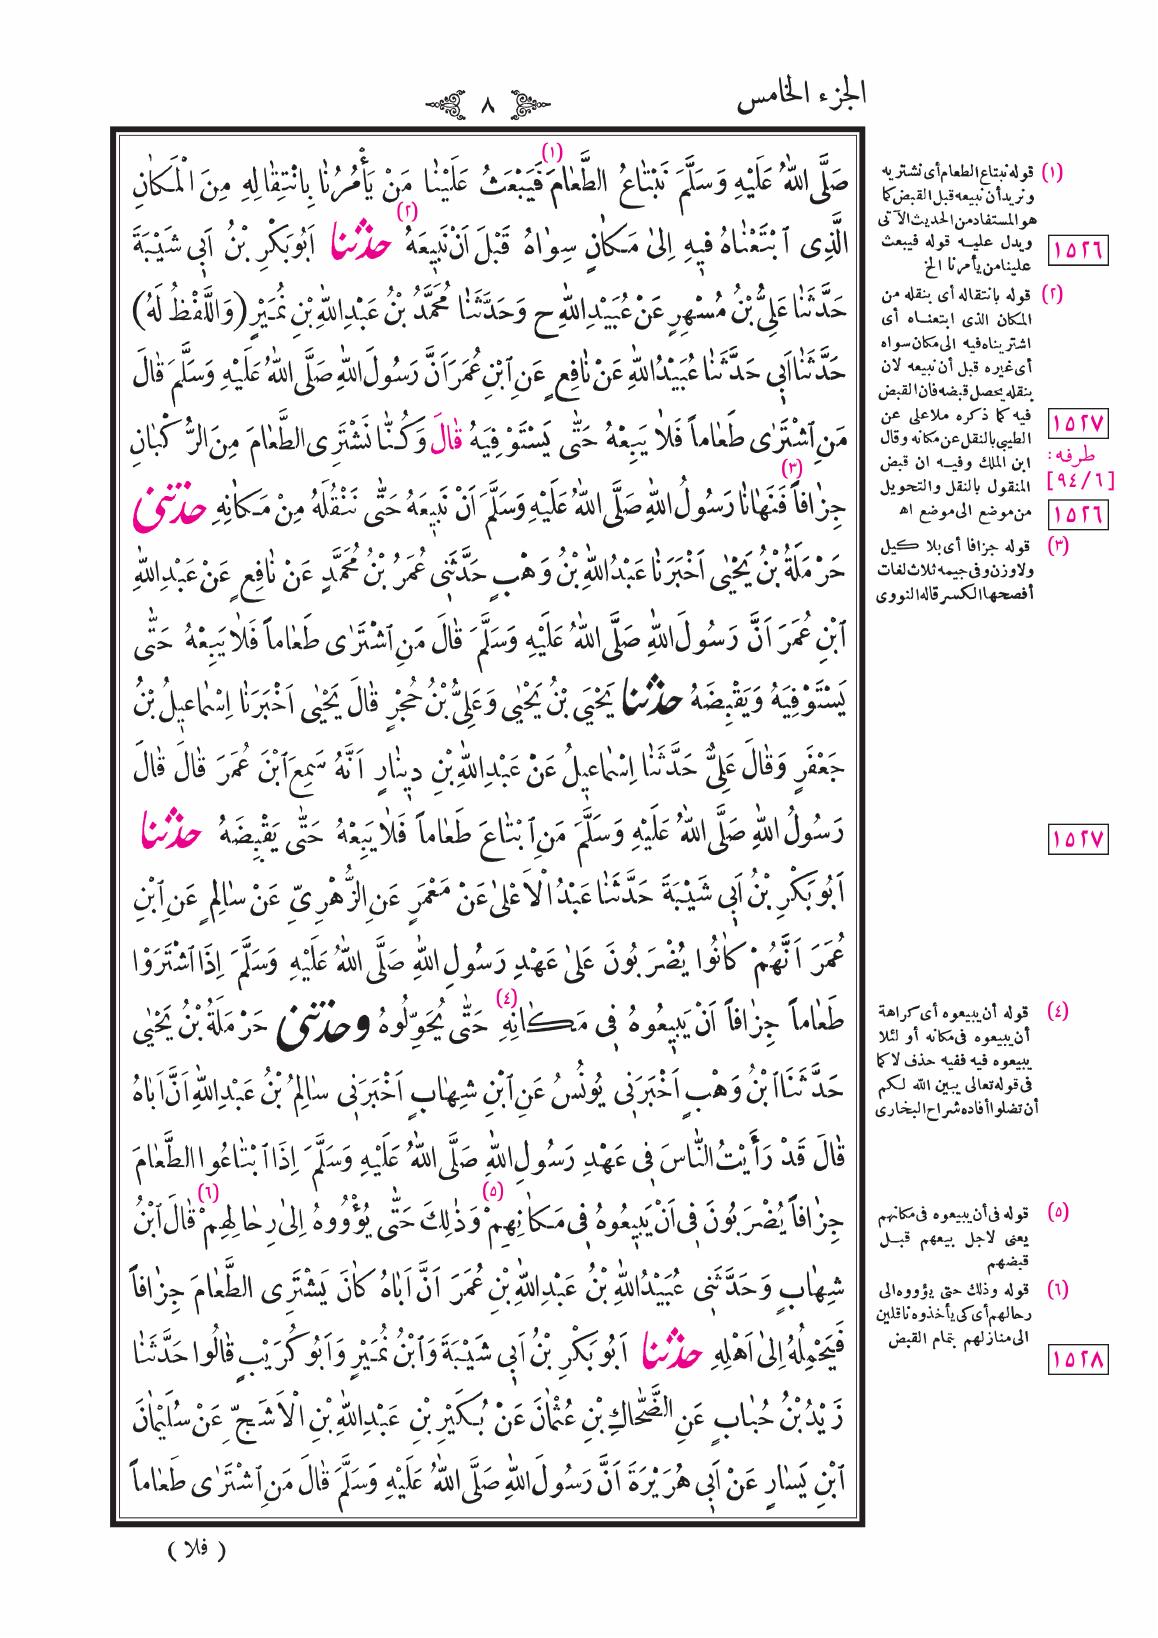 الجزء الخامس
٨
صَلَّى اللهُ عَلَيْهِ وَسَلَّمَ نَبْتَاعُ الطَّعَامَ (١) فَيَبْعَثُ عَلَيْنَا مَنْ يَأْمُرُنَا بِانْتِقَالِهِ مِنَ الْمَكَانِ
الَّذِى ابْتَعْنَاهُ فِيهِ إِلَى مَكَانٍ سِوَاهُ قَبْلَ أَنْ نَبِيعَهُ (٢) حدثنا أَبُو بَكْرِ بْنُ أَبِى شَيْبَةَ
حَدَّثَنَا عَلِىُّ بْنُ مُسْهِرٍ عَنْ عُبَيْدِ اللهِ ح وَحَدَّثَنَا مُحَمَّدُ بْنُ عَبْدِ اللهِ بْنِ نُمَيْرٍ (وَاللَّفْظُ لَهُ)
حَدَّثَنَا أَبِى حَدَّثَنَا عُبَيْدُ اللهِ عَنْ نَافِعٍ عَنِ ابْنِ عُمَرَ أَنَّ رَسُولَ اللهِ صَلَّى اللهُ عَلَيْهِ وَسَلَّمَ قَالَ
مَنِ اشْتَرَى طَعَاماً فَلَا يَبِعْهُ حَتَّى يَسْتَوْفِيَهُ قَالَ وَكُنَّا نَشْتَرِى الطَّعَامَ مِنَ الرُّكْبَانِ
جِزَافاً (٣) فَنَهَانَا رَسُولُ اللهِ صَلَّى اللهُ عَلَيْهِ وَسَلَّمَ أَنْ نَبِيعَهُ حَتَّى نَنْقُلَهُ مِنْ مَكَانِهِ حدثنى
حَرْمَلَةُ بْنُ يَحْيَى أَخْبَرَنَا عَبْدُ اللهِ بْنُ وَهْبٍ حَدَّثَنِى عُمَرُ بْنُ مُحَمَّدٍ عَنْ نَافِعٍ عَنْ عَبْدِ اللهِ
ابْنِ عُمَرَ أَنَّ رَسُولَ اللهِ صَلَّى اللهُ عَلَيْهِ وَسَلَّمَ قَالَ مَنِ اشْتَرَى طَعَاماً فَلَا يَبِعْهُ حَتَّى
يَسْتَوْفِيَهُ وَيَقْبِضَهُ حدثنا يَحْيَى بْنُ يَحْيَى وَعَلِىُّ بْنُ حُجْرٍ قَالَ يَحْيَى أَخْبَرَنَا إِسْمَاعِيلُ بْنُ
جَعْفَرٍ وَقَالَ عَلِىٌّ حَدَّثَنَا إِسْمَاعِيلُ عَنْ عَبْدِ اللهِ بْنِ دِينَارٍ أَنَّهُ سَمِعَ ابْنَ عُمَرَ قَالَ قَالَ
رَسُولُ اللهِ صَلَّى اللهُ عَلَيْهِ وَسَلَّمَ مَنِ ابْتَاعَ طَعَاماً فَلَا يَبِعْهُ حَتَّى يَقْبِضَهُ حدثنا
أَبُو بَكْرِ بْنُ أَبِى شَيْبَةَ حَدَّثَنَا عَبْدُ الْأَعْلَى عَنْ مَعْمَرٍ عَنِ الزُّهْرِىِّ عَنْ سَالِمٍ عَنِ ابْنِ
عُمَرَ أَنَّهُمْ كَانُوا يُضْرَبُونَ عَلَى عَهْدِ رَسُولِ اللهِ صَلَّى اللهُ عَلَيْهِ وَسَلَّمَ إِذَا اشْتَرَوْا
طَعَاماً جِزَافاً أَنْ يَبِيعُوهُ فِى مَكَانِهِ (٤) حَتَّى يُحَوِّلُوهُ وحدثنى حَرْمَلَةُ بْنُ يَحْيَى
حَدَّثَنَا ابْنُ وَهْبٍ أَخْبَرَنِى يُونُسُ عَنِ ابْنِ شِهَابٍ أَخْبَرَنِى سَالِمُ بْنُ عَبْدِ اللهِ أَنَّ أَبَاهُ
قَالَ قَدْ رَأَيْتُ النَّاسَ فِى عَهْدِ رَسُولِ اللهِ صَلَّى اللهُ عَلَيْهِ وَسَلَّمَ إِذَا ابْتَاعُوا الطَّعَامَ
جِزَافاً يُضْرَبُونَ فِى أَنْ يَبِيعُوهُ فِى مَكَانِهِمْ (٥) وَذَلِكَ حَتَّى يُؤْوُوهُ إِلَى رِحَالِهِمْ (٦) قَالَ ابْنُ
شِهَابٍ وَحَدَّثَنِى عُبَيْدُ اللهِ بْنُ عَبْدِ اللهِ بْنِ عُمَرَ أَنَّ أَبَاهُ كَانَ يَشْتَرِى الطَّعَامَ جِزَافاً
فَيَحْمِلُهُ إِلَى أَهْلِهِ حدثنا أَبُو بَكْرِ بْنُ أَبِى شَيْبَةَ وَابْنُ نُمَيْرٍ وَأَبُو كُرَيْبٍ قَالُوا حَدَّثَنَا
زَيْدُ بْنُ حُبَابٍ عَنِ الضَّحَّاكِ بْنِ عُثْمَانَ عَنْ بُكَيْرِ بْنِ عَبْدِ اللهِ بْنِ الْأَشَجِّ عَنْ سُلَيْمَانَ
ابْنِ يَسَارٍ عَنْ أَبِى هُرَيْرَةَ أَنَّ رَسُولَ اللهِ صَلَّى اللهُ عَلَيْهِ وَسَلَّمَ قَالَ مَنِ اشْتَرَى طَعَاماً
( فلا )
(١) قوله نبتاع الطعام أى نشتريه
ونريد أن نبيعه قبل القبض كما
هو المستفاد من الحديث الآتى
ويدل عليه قوله فيبعث
علينا من يأمرنا الخ
(٢) قوله بانتقاله أى بنقله من
المكان الذى ابتعناه أى
اشتريناه فيه الى مكان سواه
أى غيره قبل أن نبيعه لان
بنقله يحصل قبضه فان القبض
فيه كما ذكره ملا على عن
الطيبى بالنقل عن مكانه وقال
ابن الملك وفيه ان قبض
المنقول بالنقل والتحويل
من موضع الى موضع اه
(٣) قوله جزافا أى بلا كيل
ولا وزن وفى جيمه ثلاث لغات
أفصحها الكسر قاله النووى
(٤) قوله أن يبيعوه أى كراهة
أن يبيعوه فى مكانه أو لئلا
يبيعوه فيه ففيه حذف لا كما
فى قوله تعالى يبين الله لكم
أن تضلوا أفاده شراح البخارى
(٥) قوله فى أن يبيعوه فى مكانهم
يعنى لاجل بيعهم قبل
قبضهم
(٦) قوله وذلك حتى يؤووه الى
رحالهم أى كى يأخذوه ناقلين
الى منازلهم بتمام القبض
١٥٢٦
١٥٢٧
طرفه :
[٩٤/٦]
١٥٢٦
١٥٢٧
١٥٢٨